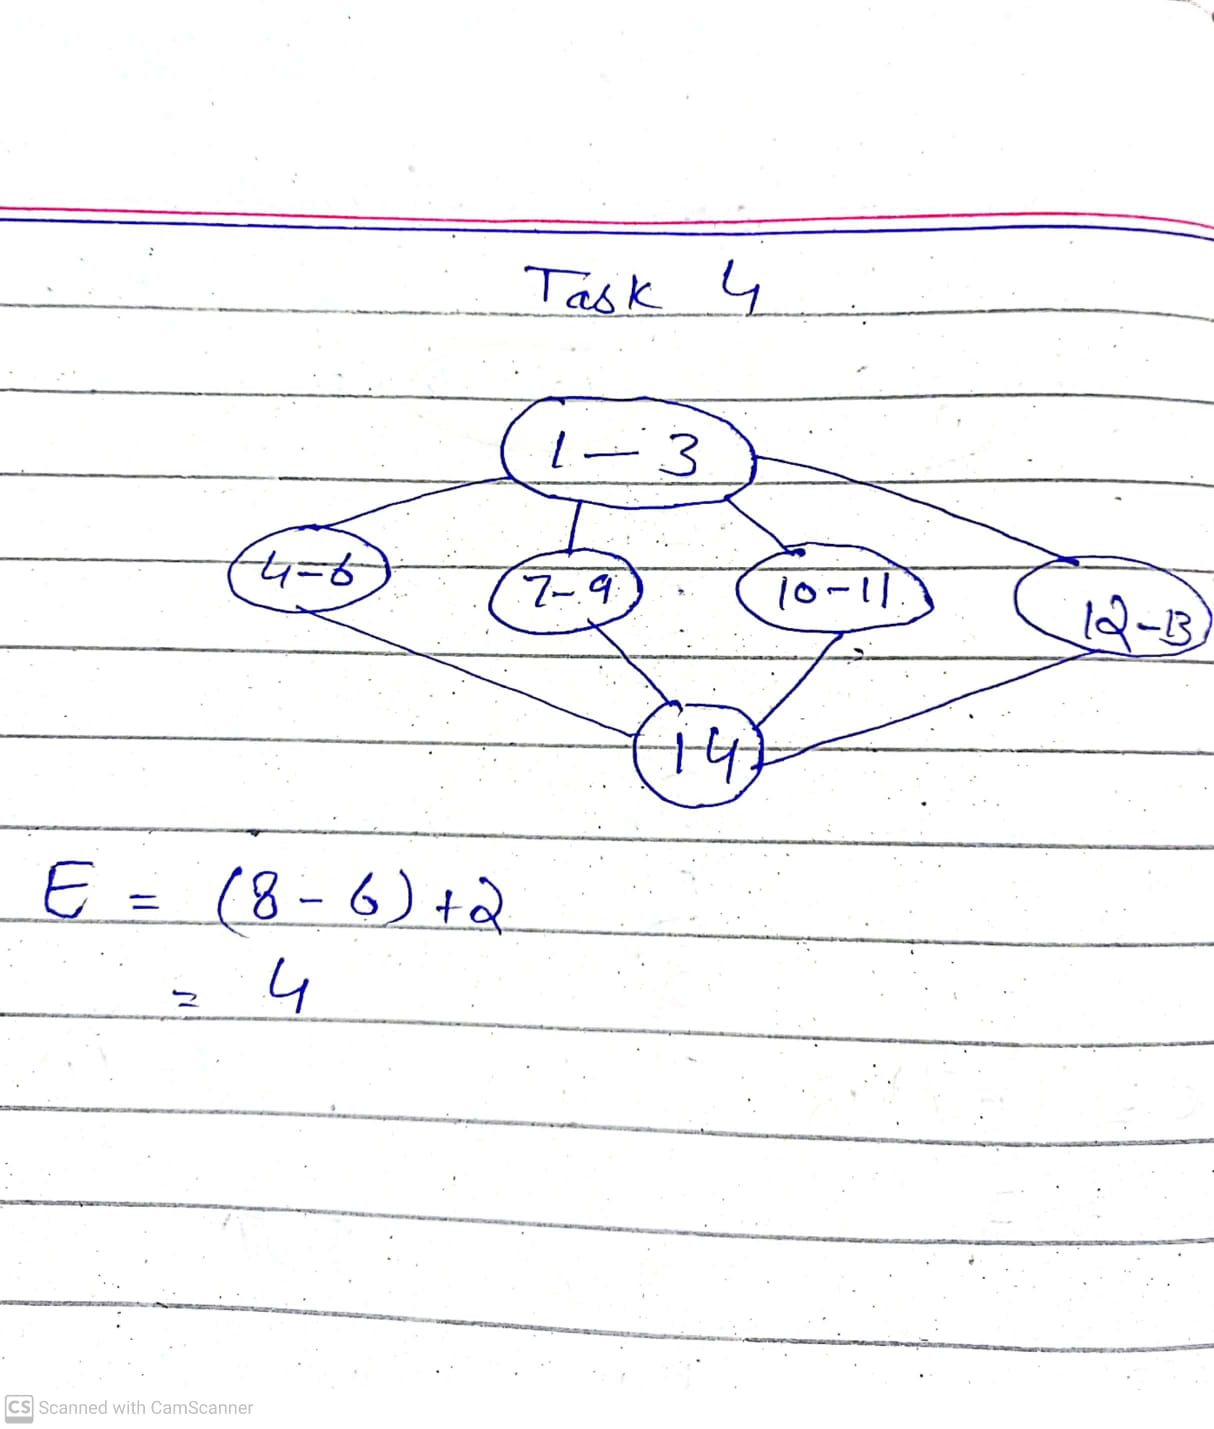 Task 4
1 - 3
4-6
7-9
10-11
12-13
14
E = (8-6)+2
= 4
CS Scanned with CamScanner